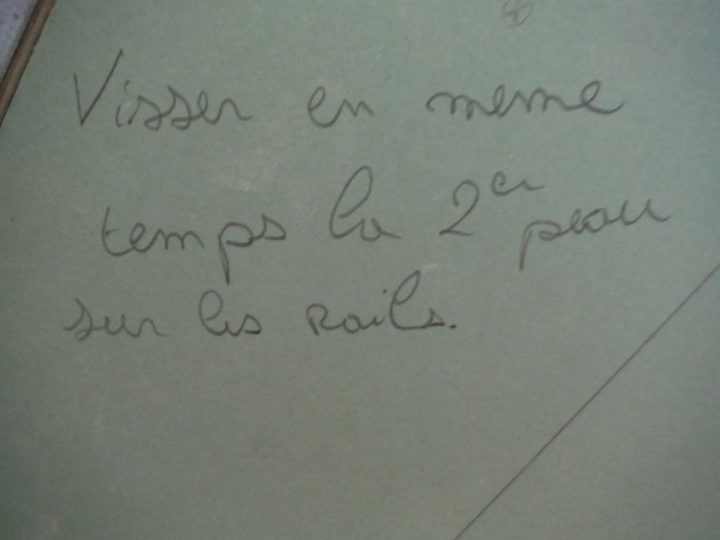 Visser en meme
temps la 2er peau
sur les rails.